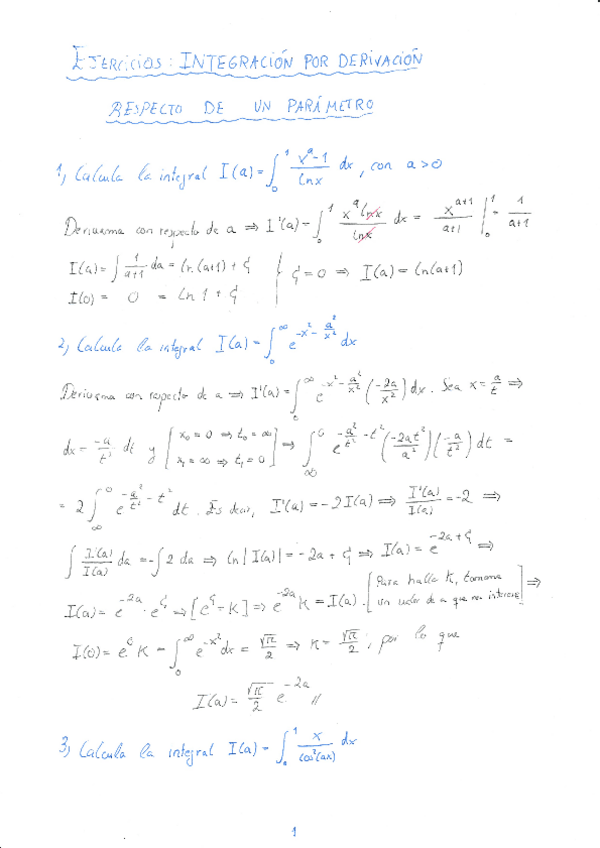 EJERCICIOS: INTEGRACIÓN POR DERIVACIÓN
RESPECTO DE UN PARÁMETRO
1) Calcula la integral I(a) = ∫₀¹ (xᵃ-1)/(ln x) dx, con a>0
Derivamos con respecto de a ⇒ I'(a) = ∫₀¹ (xᵃ ln x)/(ln x) dx = x^(a+1)/(a+1) |₀¹ = 1/(a+1)
I(a) = ∫ 1/(a+1) da = ln(a+1) + C₁ { C₁ = 0 ⇒ I(a) = ln(a+1)
I(0) = 0 = ln 1 + C₁
2) Calcula la integral I(a) = ∫₀^∞ e^(-x² - a²/x²) dx
Derivamos con respecto de a ⇒ I'(a) = ∫₀^∞ e^(-x² - a²/x²) (-2a/x²) dx. Sea x = a/t ⇒
dx = -a/t² dt y [x₀ = 0 ⇒ t₀ = ∞ x₁ = ∞ ⇒ t₁ = 0] ⇒ ∫_∞^0 e^(-a²/t² - t²) (-2at²/a²) (-a/t²) dt =
= 2 ∫_∞^0 e^(-a²/t² - t²) dt. Es decir, I'(a) = -2I(a) ⇒ I'(a)/I(a) = -2 ⇒
∫ I'(a)/I(a) da = -∫ 2 da ⇒ ln |I(a)| = -2a + C₁ ⇒ I(a) = e^(-2a + C₁) ⇒
I(a) = e^(-2a) · e^(C₁) ⇒ [e^(C₁) = K] ⇒ e^(-2a) K = I(a). [Para halla K, tomamos un valor de a que nos interese] ⇒
I(0) = e⁰ K = ∫₀^∞ e^(-x²) dx = √π/2 ⇒ K = √π/2, por lo que
I(a) = √π/2 e^(-2a) //
3) Calcula la integral I(a) = ∫₀¹ x/cos²(ax) dx
1